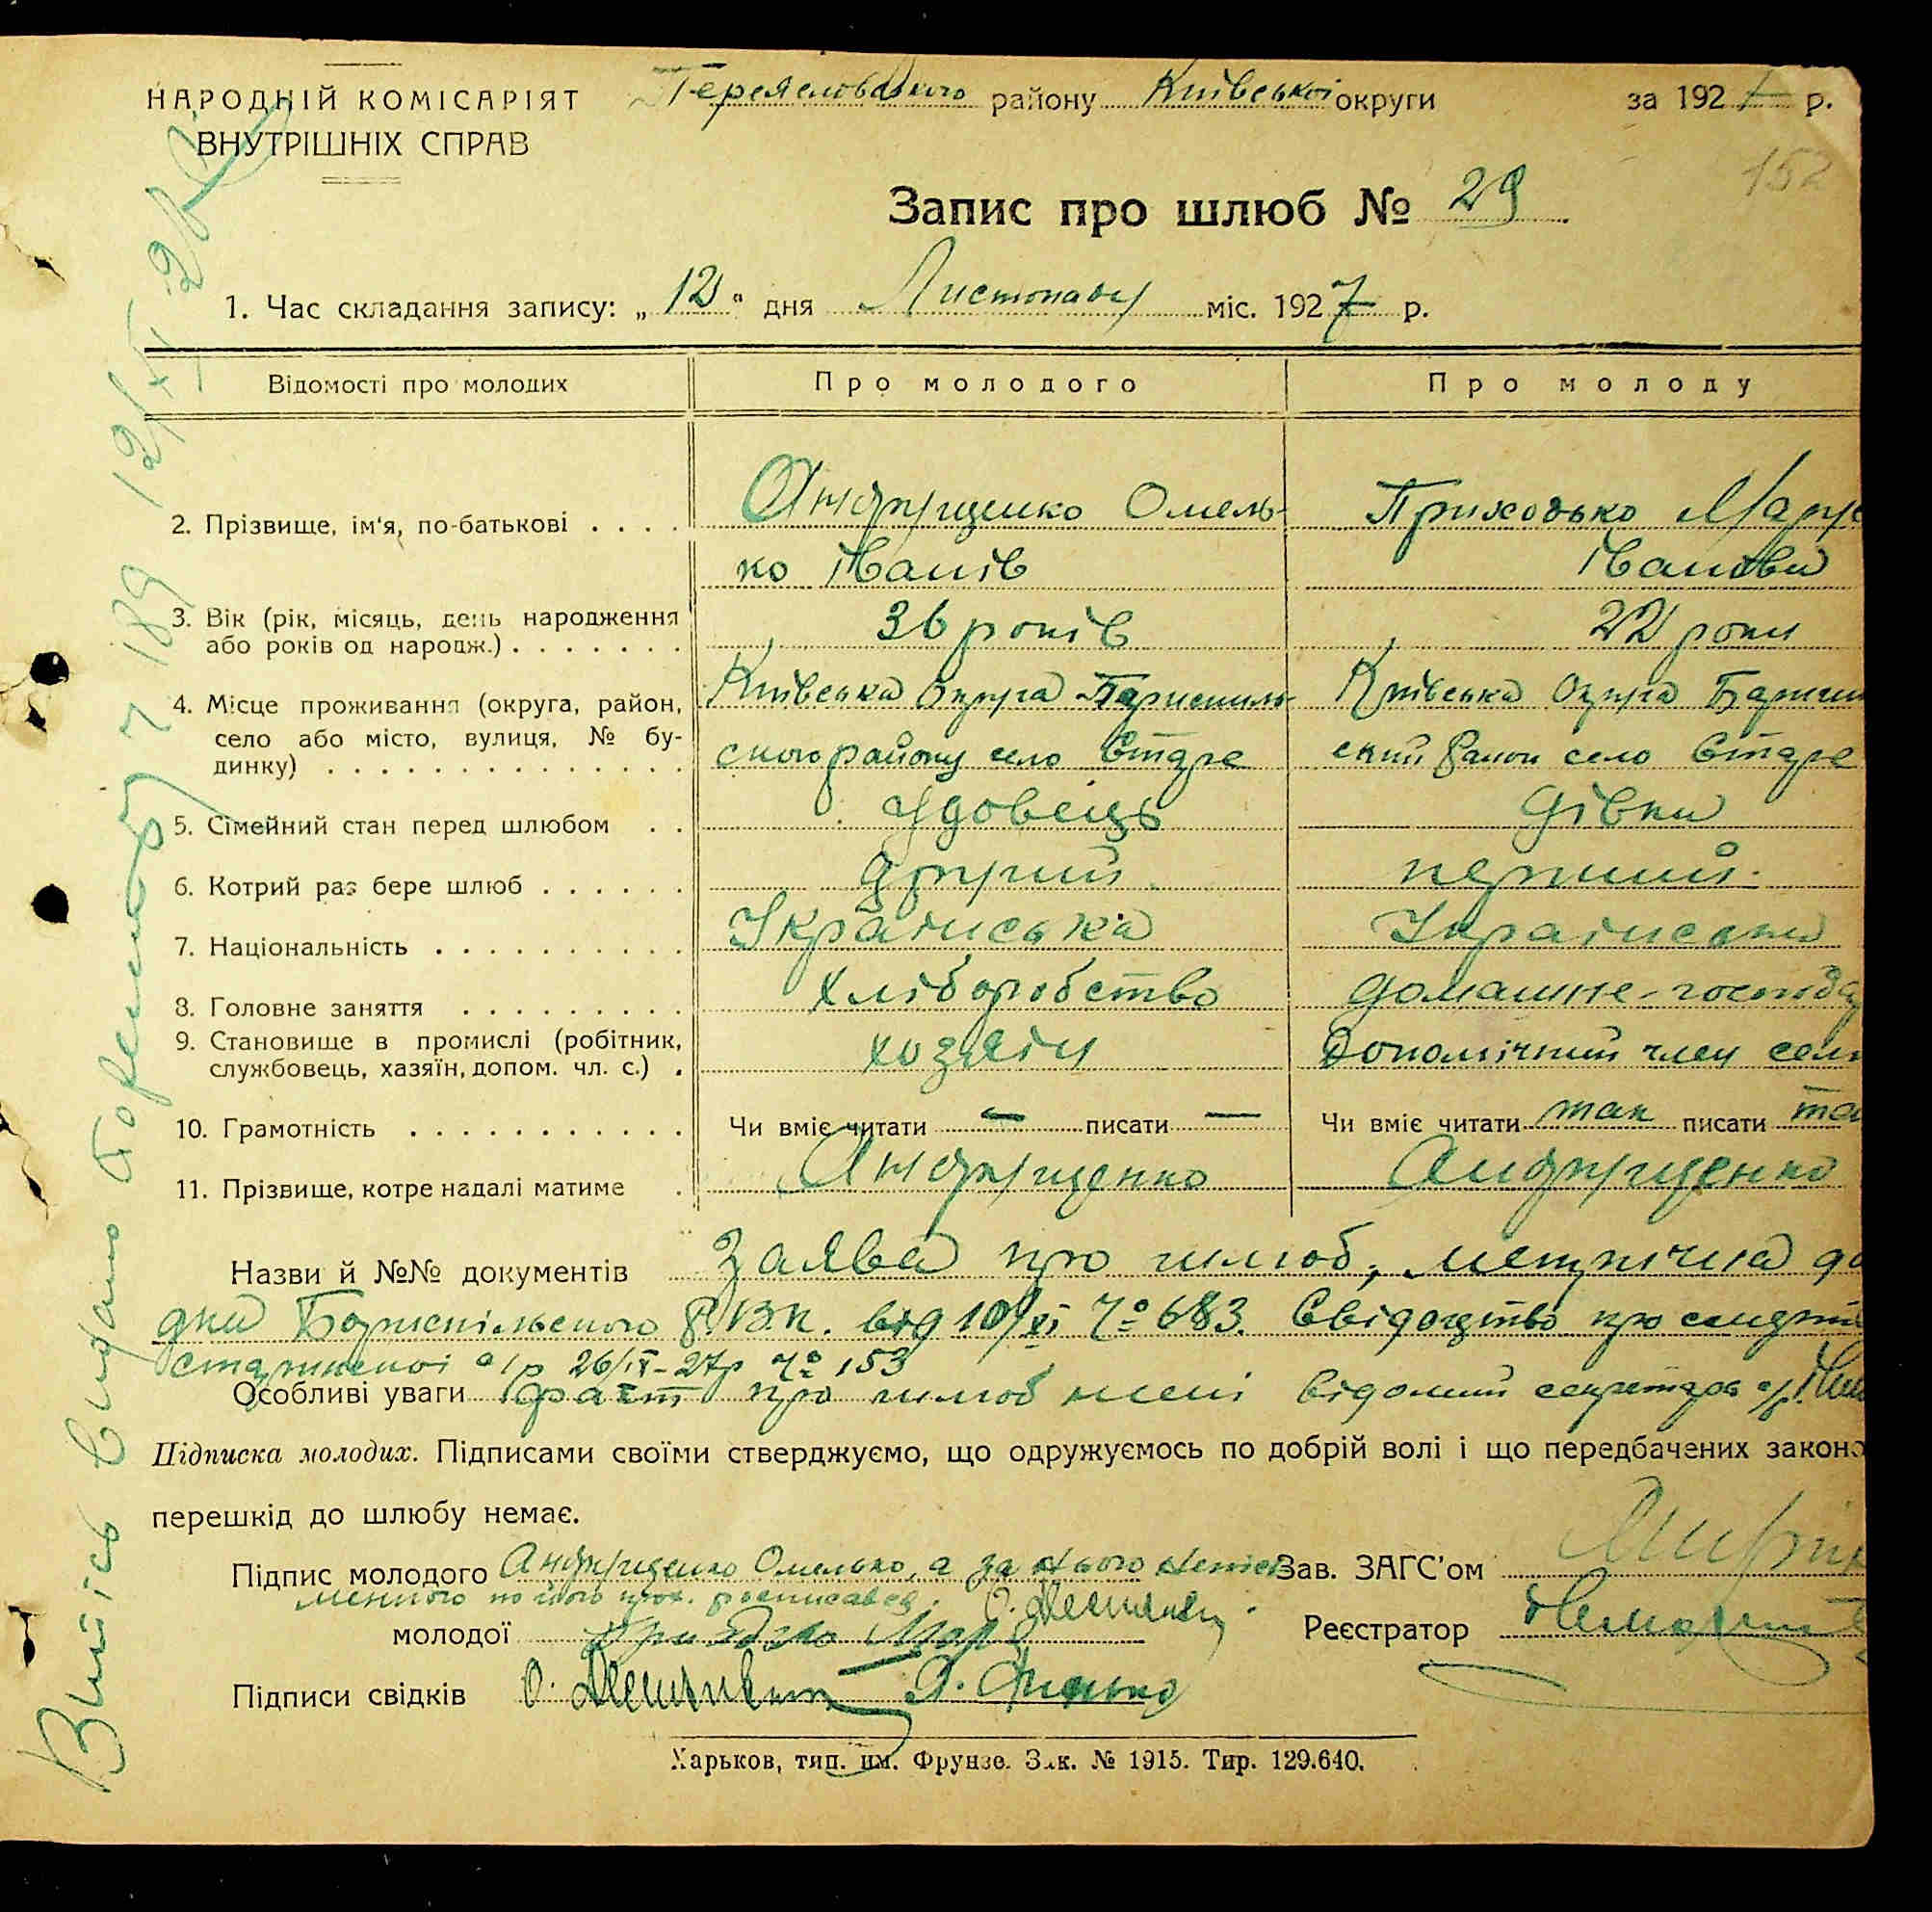 НАРОДНІЙ КОМІСАРІЯТ
ВНУТРІШНІХ СПРАВ
району Київської округи за 1927 р.
152
Запис про шлюб № 29
1. Час складання запису: „12" дня Листопада міс. 1927 р.
Відомості про молодих Про молодого Про молоду
2. Прізвище, ім'я, по-батькові . . . . Андрущенко Омель- Приходько Мару
ко Іванів Іванова
3. Вік (рік, місяць, день народження
або років од народж.) . . . . . . . 36 років 22 роки
4. Місце проживання (округа, район, Київська Округа Бариспиль- Київська Округа Бариш
село або місто, вулиця, № бу- ського району село Старе ський Район село Старе
динку) . . . . . . . . . . . . . .
5. Сімейний стан перед шлюбом . . Удовець Дівка
6. Котрий раз бере шлюб . . . . . . другий перший.
7. Національність . . . . . . . . . . Українська Українська
8. Головне заняття . . . . . . . . . Хліборобство домашнє-господа
9. Становище в промислі (робітник, хозяїн Допомічний член сем
службовець, хазяїн, допом. чл. с.) .
10. Грамотність . . . . . . . . . . . Чи вміє читати — писати — Чи вміє читати так писати та
11. Прізвище, котре надалі матиме . Андрущенко Андрущенко
Назви й №№ документів Заява про шлюб, метрична до
дка Бориспільского Р.В.К. від 10/XI № 683. Свідоцтво про смерть
с/р 26/IX-27р № 153
Особливі уваги факт про шлюб мені відомий секретарь с/р.
Підписка молодих. Підписами своїми стверджуємо, що одружуємось по добрій волі і що передбачених законо
перешкід до шлюбу немає.
Підпис молодого Андрущенко Омелько, а за нього непись Зав. ЗАГС'ом
менного по його прох. росписався
молодої Приходько Мар Реєстратор
Підписи свідків О.
Харьков, тип. им. Фрунзе. Зак. № 1915. Тир. 129.640.
Випісь видано № 189 12/XI 27